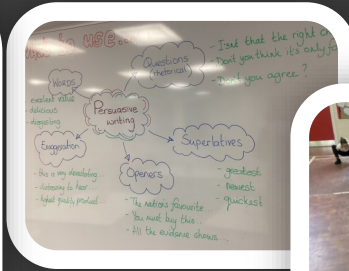 to use...
Questions
(rhetorical)
- Isn't that the right
- Don't you think it's only
- Don't you agree?
Words
excellent value
delicious
disgusting
Persuasive
writing
Exaggeration
- this is very devastating...
- distressing to hear...
- highest quality product
Openers
- The nation's favourite
- You must buy this..
- All the evidence shows...
Superlatives
- greatest
- newest
- quickest